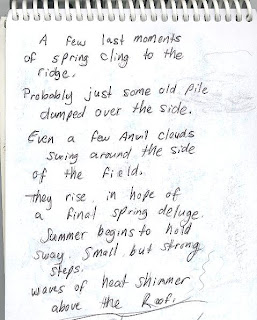 A few last moments
of spring cling to the
ridge.
Probably just some old pile
dumped over the side.
Even a few Anvil clouds
swing around the side
of the field.
They rise in hope of
a final spring deluge.
Summer begins to hold
sway. Small but strong
steps.
waves of heat shimmer
above the Roof.